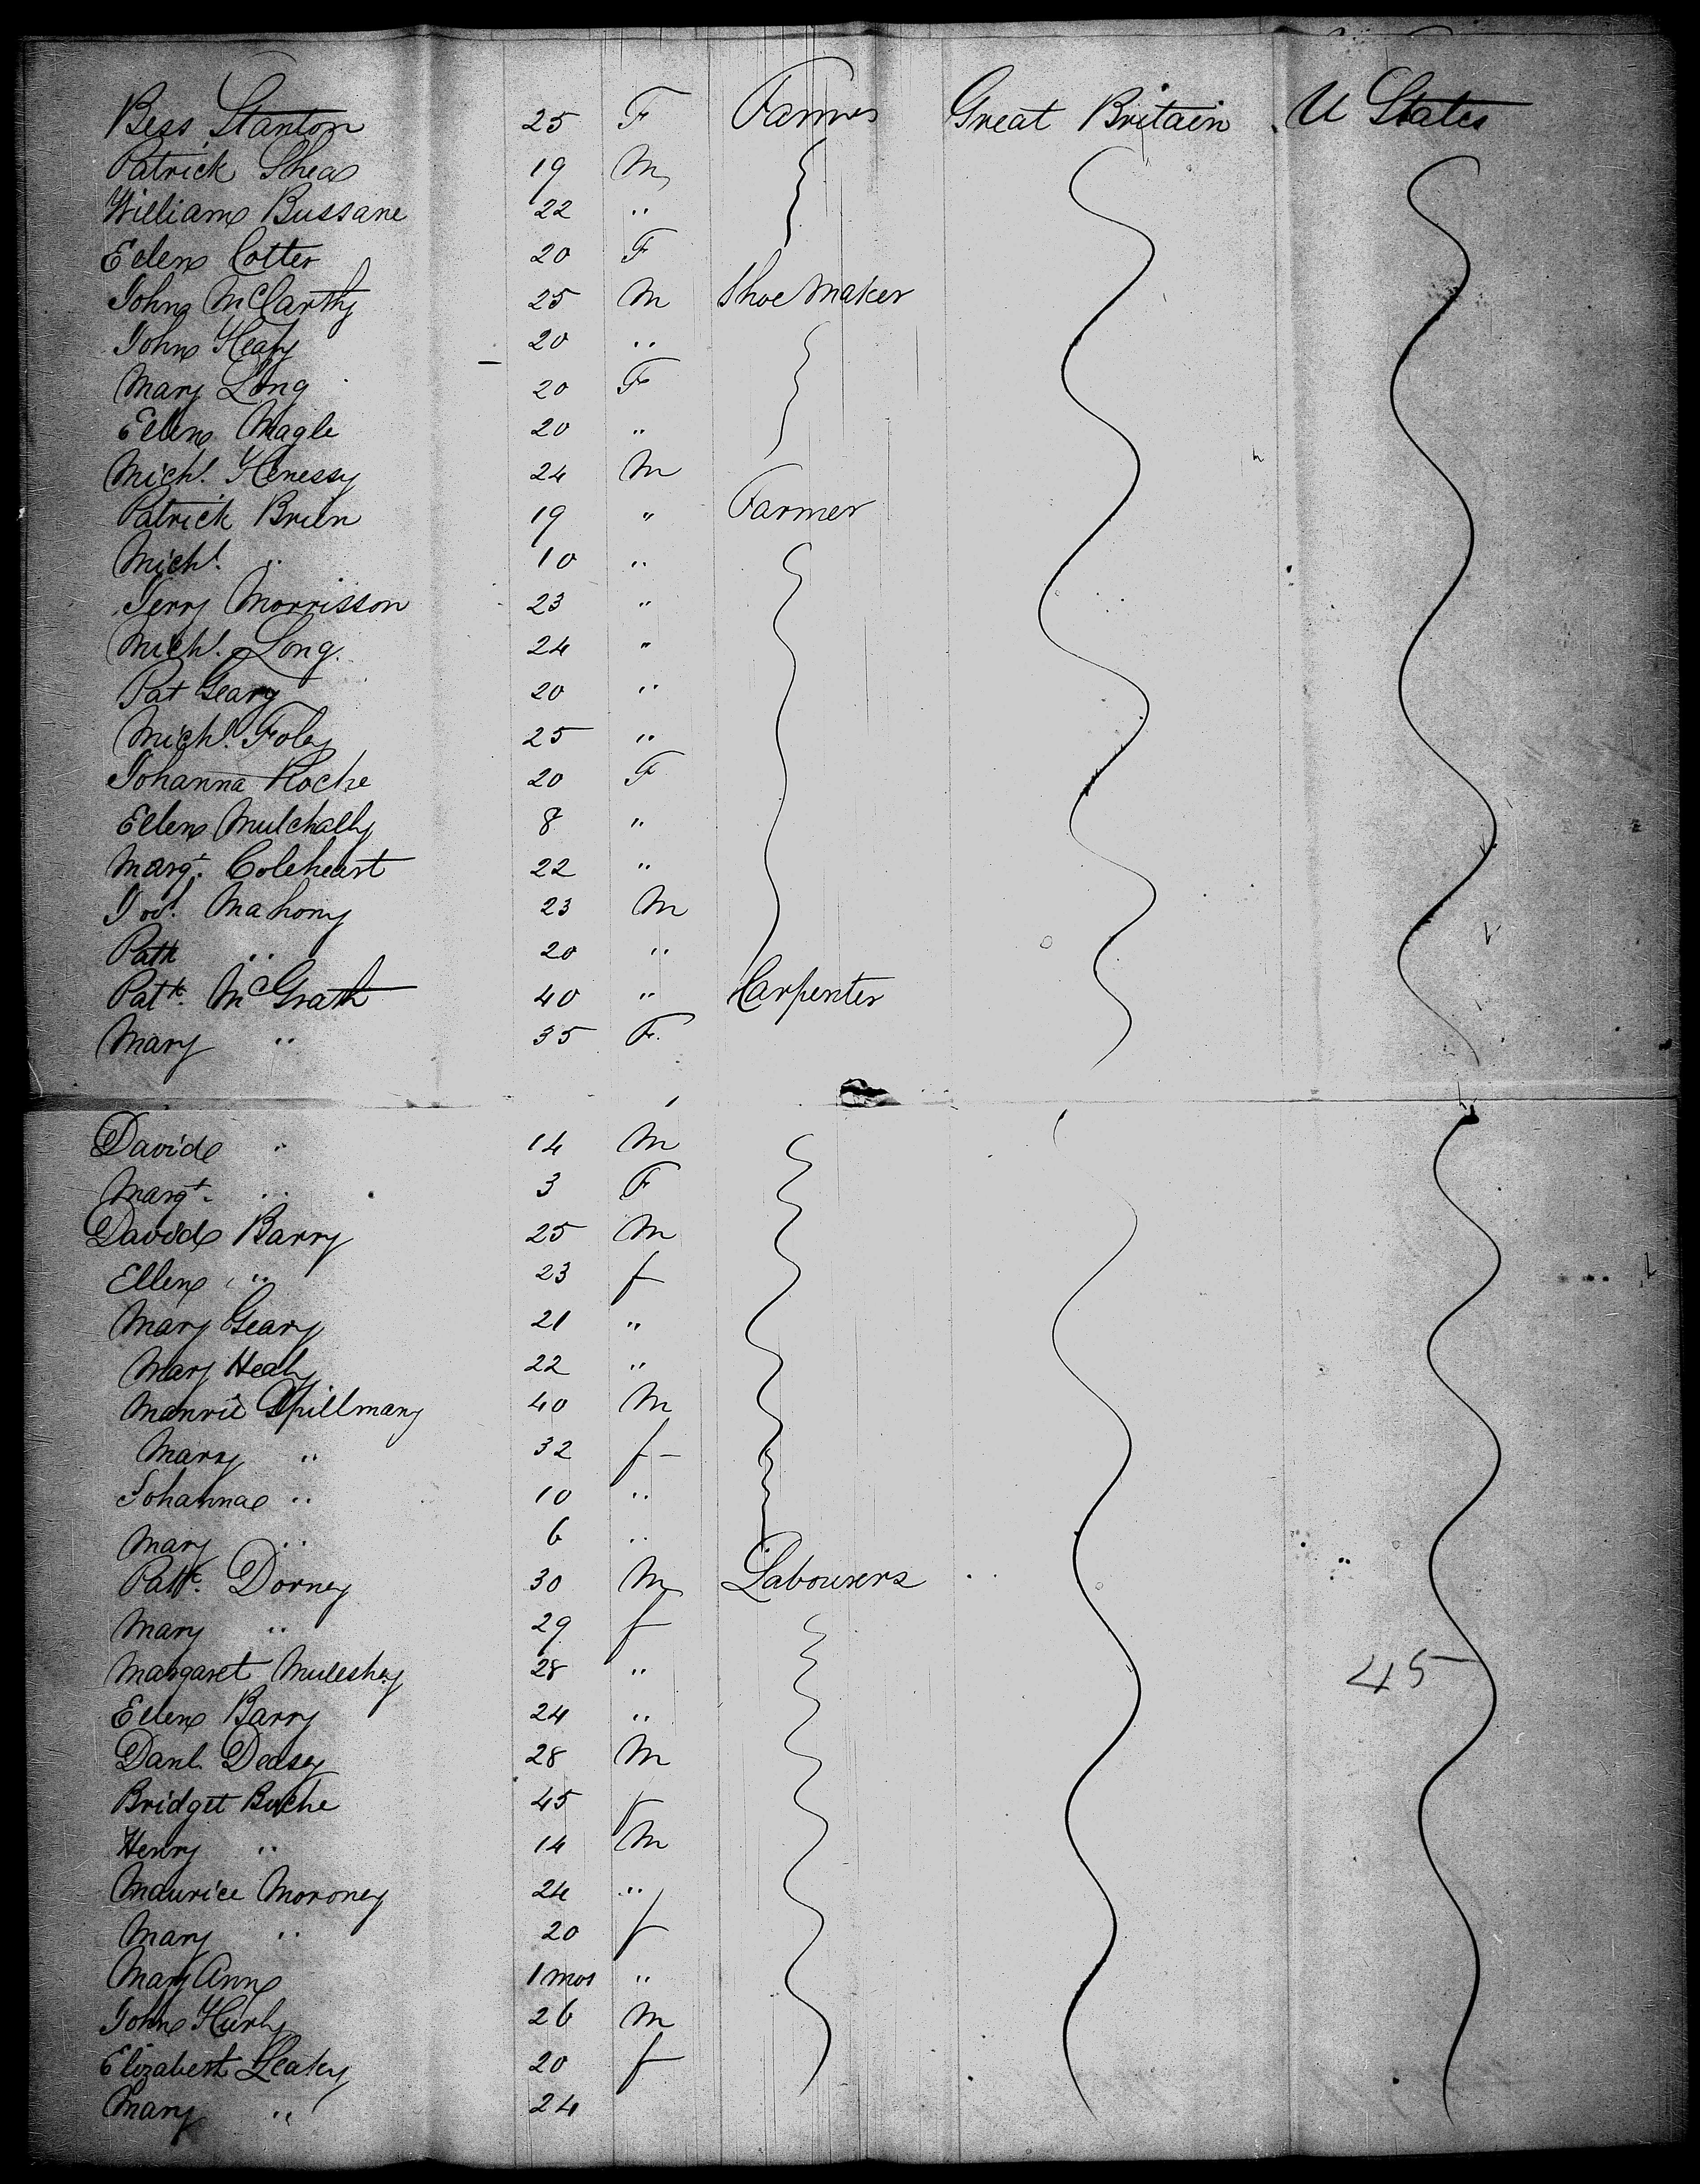 Bess Stanton 25 F Farmer Great Britain U States
Patrick Shea 19 M
William Bussane 22 "
Ellen Cotter 20 F
John McCarthy 25 M Shoe Maker
John Healy 20 "
Mary Long 20 F
Ellen Nagle 20 "
Michl. Henessy 24 M
Patrick Brien 19 " Farmer
Michl. " 10 "
Jerry Morrisson 23 "
Michl. Long 24 "
Pat Geary 20 "
Michl. Foley 25 "
Johanna Roche 20 F
Ellen Mulchally 8 "
Margt. Coleheart 22 "
Mahony 23 M
Patk " 20 "
Patk. McGrath 40 " Carpenter
Mary " 35 F.
David " 14 M
Margt. " 3 F
David Barry 25 M
Ellen " 23 f
Mary Geary 21 "
Mary Healy 22 "
Manrie Spillmany 40 M
Mary " 32 f
Johanna " 10 "
Mary " 6 "
Patk. Dorney 30 M Labourers
Mary " 29 f
Margaret Muleshey 28 "
45
Ellen Barry 24 "
Danl. Deasey 28 M
Bridget 45 f
Henry " 14 M
Maurice Moroney 24 "
Mary " 20 f
Mary Ann 1 mos "
John Hurly 26 M
Elizabeth Leahy 20 f
Mary " 24